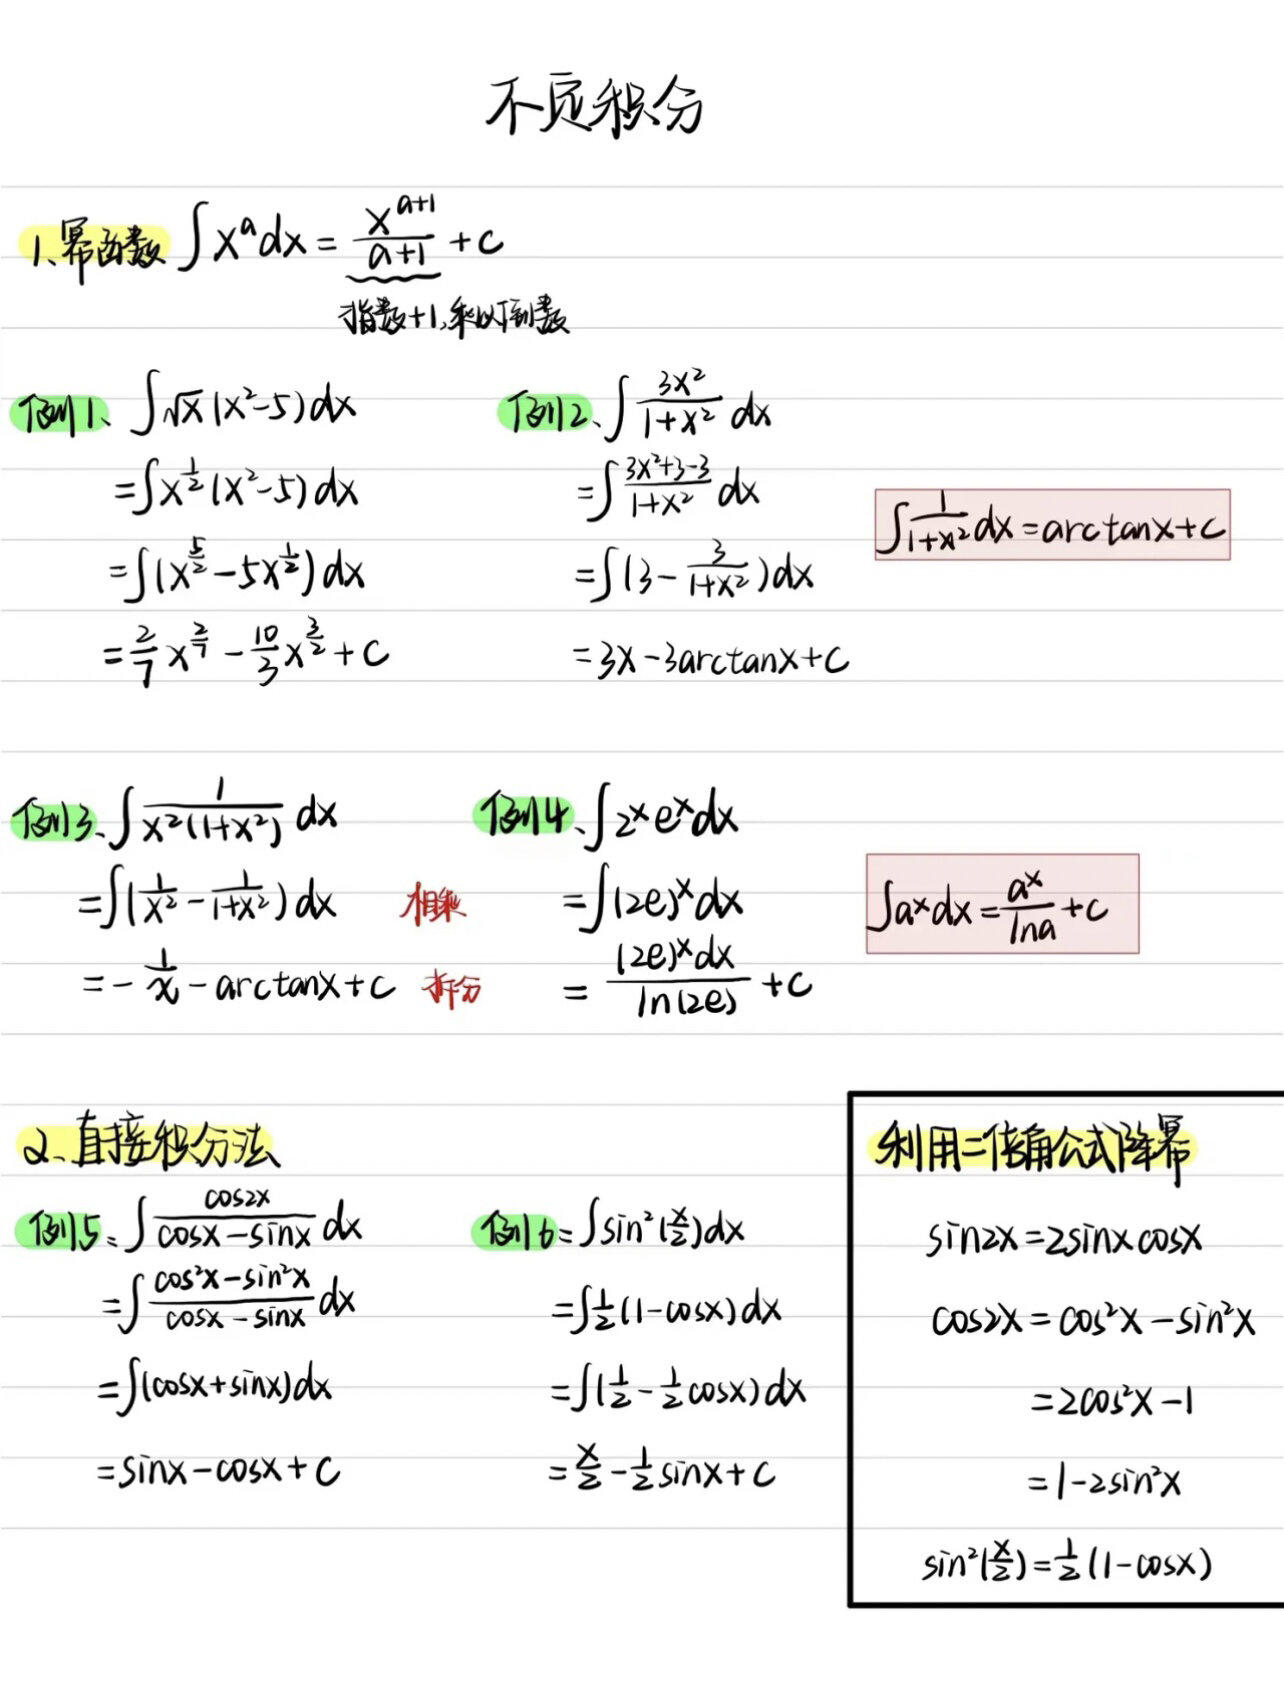 不定积分
1、幂函数 ∫x^a dx = x^(a+1)/(a+1) + c
指数+1,乘以倒数
例1、∫√x(x²-5)dx
=∫x^(1/2)(x²-5)dx
=∫(x^(5/2)-5x^(1/2))dx
=2/7 x^(2/7) - 10/3 x^(3/2) + c
例2、∫3x²/(1+x²) dx
=∫(3x²+3-3)/(1+x²) dx
=∫(3-3/(1+x²))dx
=3x-3arctanx+c
∫1/(1+x²)dx=arctanx+c
例3、∫1/(x²(1+x²)) dx
=∫(1/x²-1/(1+x²))dx 相乘
=-1/x-arctanx+c 拆分
例4、∫2^x e^x dx
=∫(2e)^x dx
=(2e)^x dx/ln(2e) +c
∫a^x dx=a^x/lna+c
2、直接积分法
例5、∫cos2x/(cosx-sinx) dx
=∫(cos²x-sin²x)/(cosx-sinx) dx
=∫(cosx+sinx)dx
=sinx-cosx+c
例6=∫sin²(x/2)dx
=∫1/2(1-cosx)dx
=∫(1/2-1/2cosx)dx
=x/2-1/2sinx+c
利用二倍角公式降幂
sin2x=2sinxcosx
cos2x=cos²x-sin²x
=2cos²x-1
=1-2sin²x
sin²(x/2)=1/2(1-cosx)